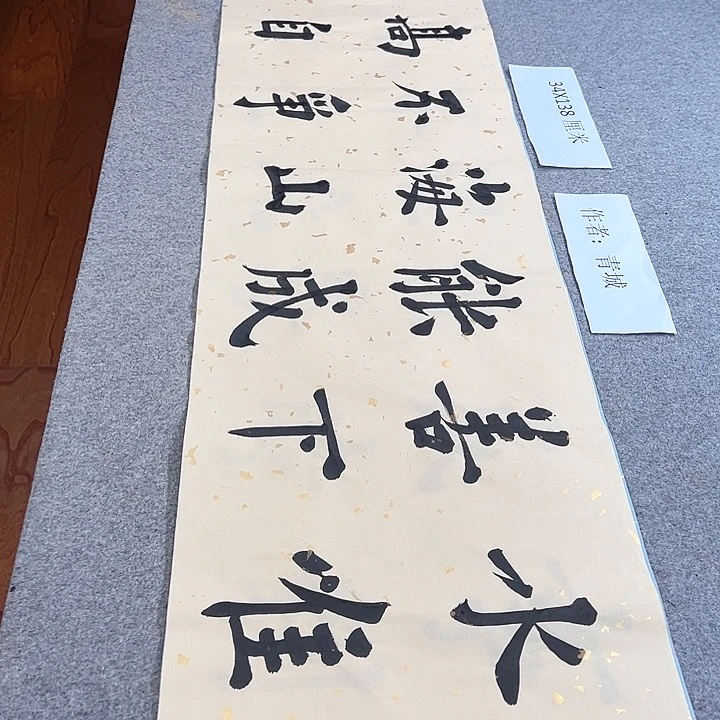 水唯
善下
能成
海山
不争
高自
34X138厘米
作者：青城